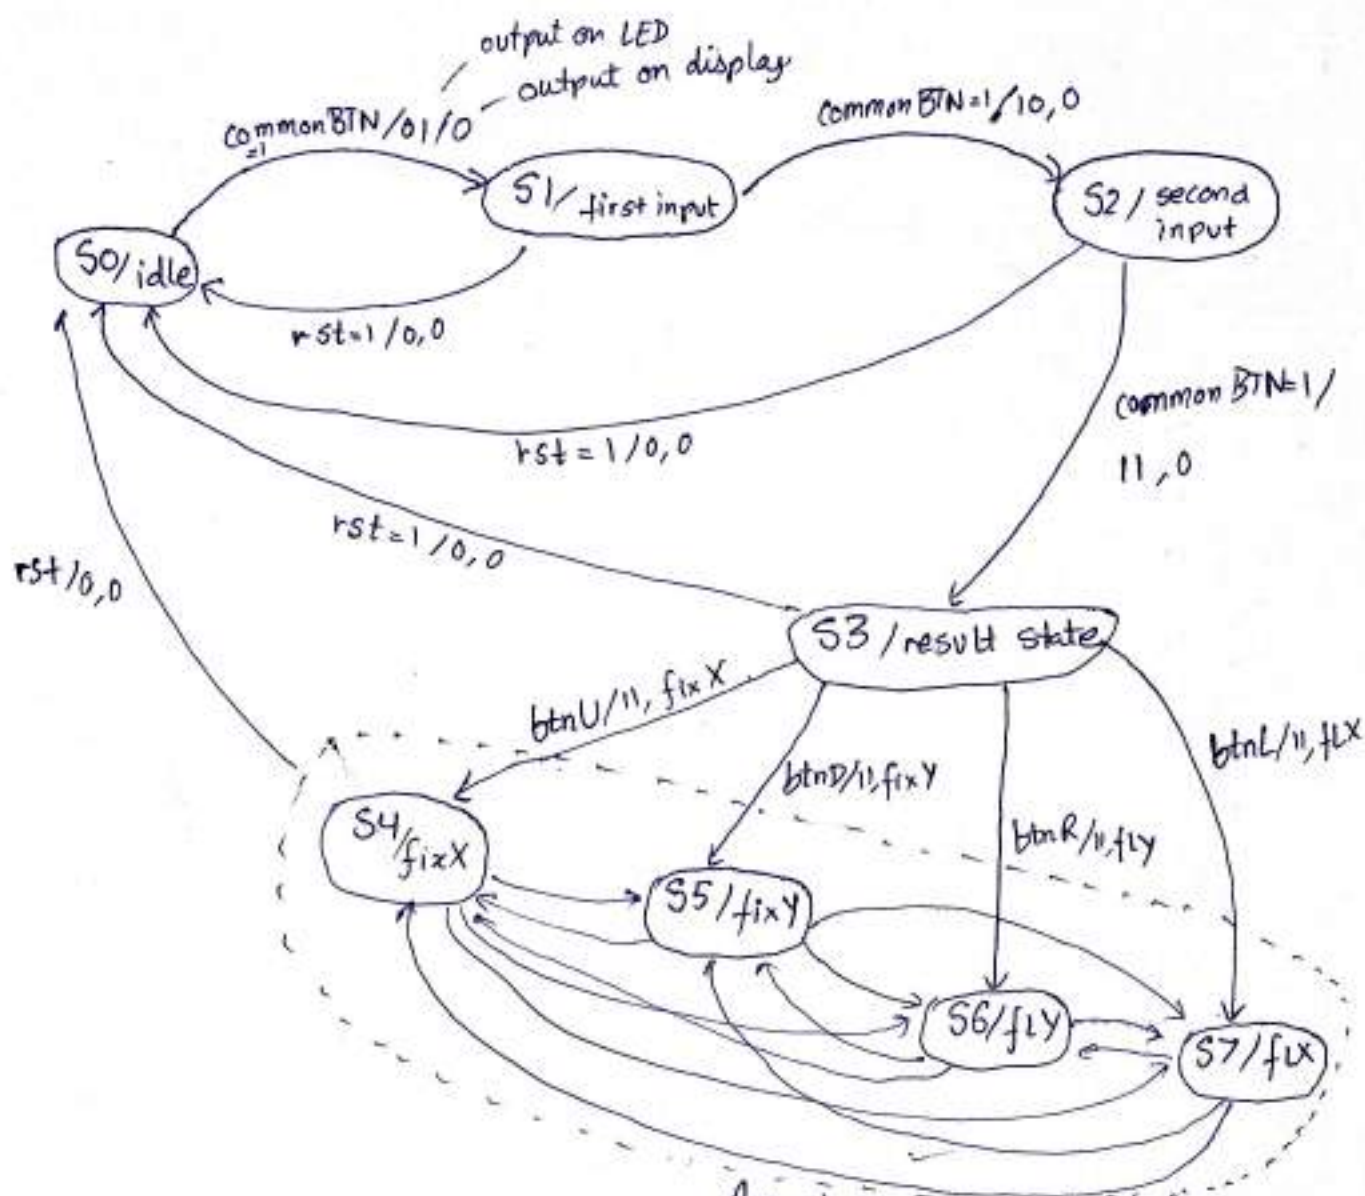 output on LED
output on display
commonBTN/01/0
=1
commonBTN=1/10,0
S1/first input
S2/second
input
S0/idle
rst=1/0,0
commonBTN=1/
11,0
rst=1/0,0
rst=1/0,0
rst/0,0
S3/result state
btnU/11, fixX
btnL/11,fLX
btnD/11,fixY
btnR/11,fLY
S4/fixX
S5/fixY
S6/fLY
S7/fLX